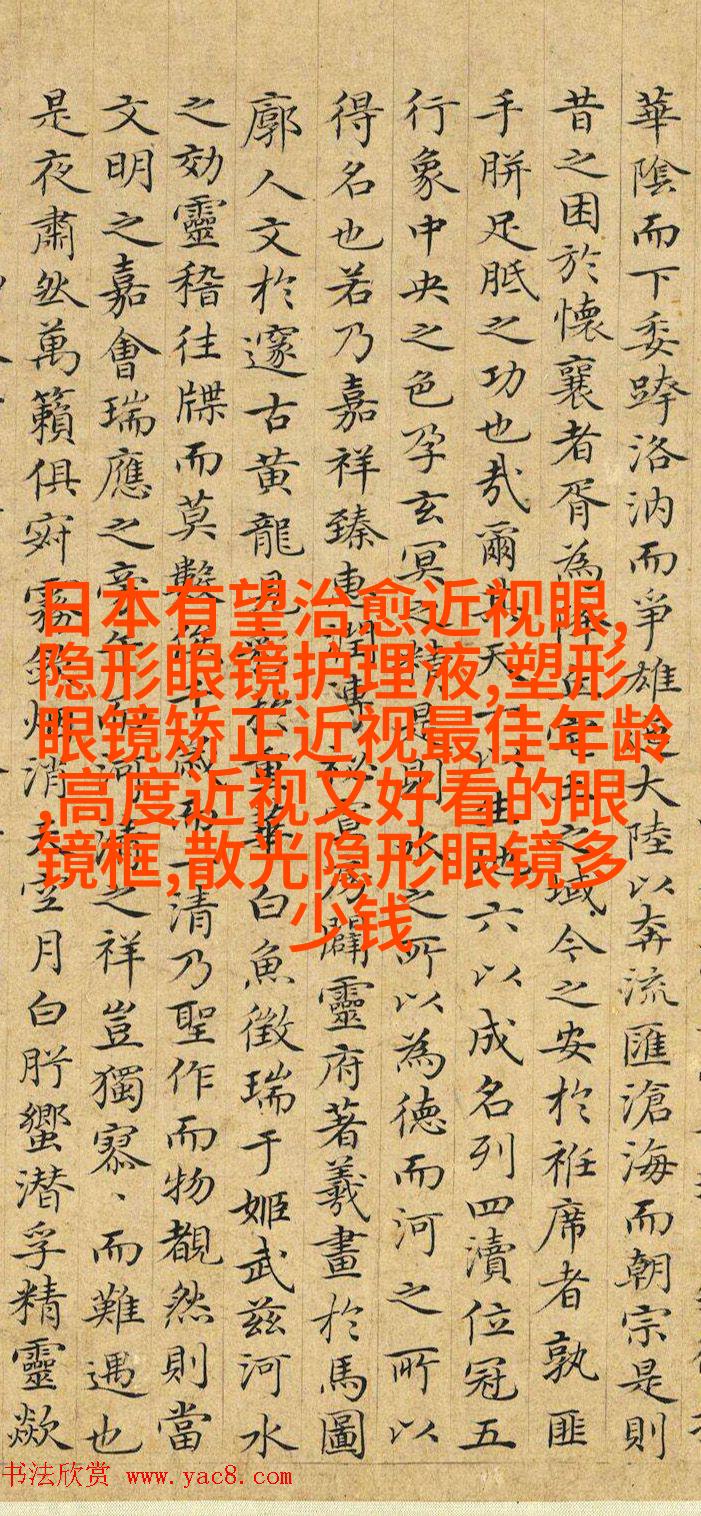 華陰而下委跨洛汭而爭雄大陸以奔流匯滄海而朝宗是則
昔之困於懷襄者胥為之域今之安於袵席者孰匪
手胼足胝之功也哉爾天以生地六以成名列四瀆位冠五
行象中央之色孕玄冥之精是則水之所以為德而河之所以
得名也若乃嘉祥臻闢靈府著羲畫於馬圖
廓人文於邃古黃龍見白魚徵瑞于姬武茲河水
之効靈稽往牒而莫清乃聖作而物覩然則當
文明之嘉會瑞應之河清之祥豈獨寡、而難遇也
是夜肅然萬籟俱寂霧斂烟消天空月白肸蠁潜孚精靈歘
日本有望治愈近视眼,
隐形眼镜护理液,塑形
眼镜矫正近视最佳年龄
,高度近视又好看的眼
镜框,散光隐形眼镜多
少钱
书法欣赏 www.yac8.com